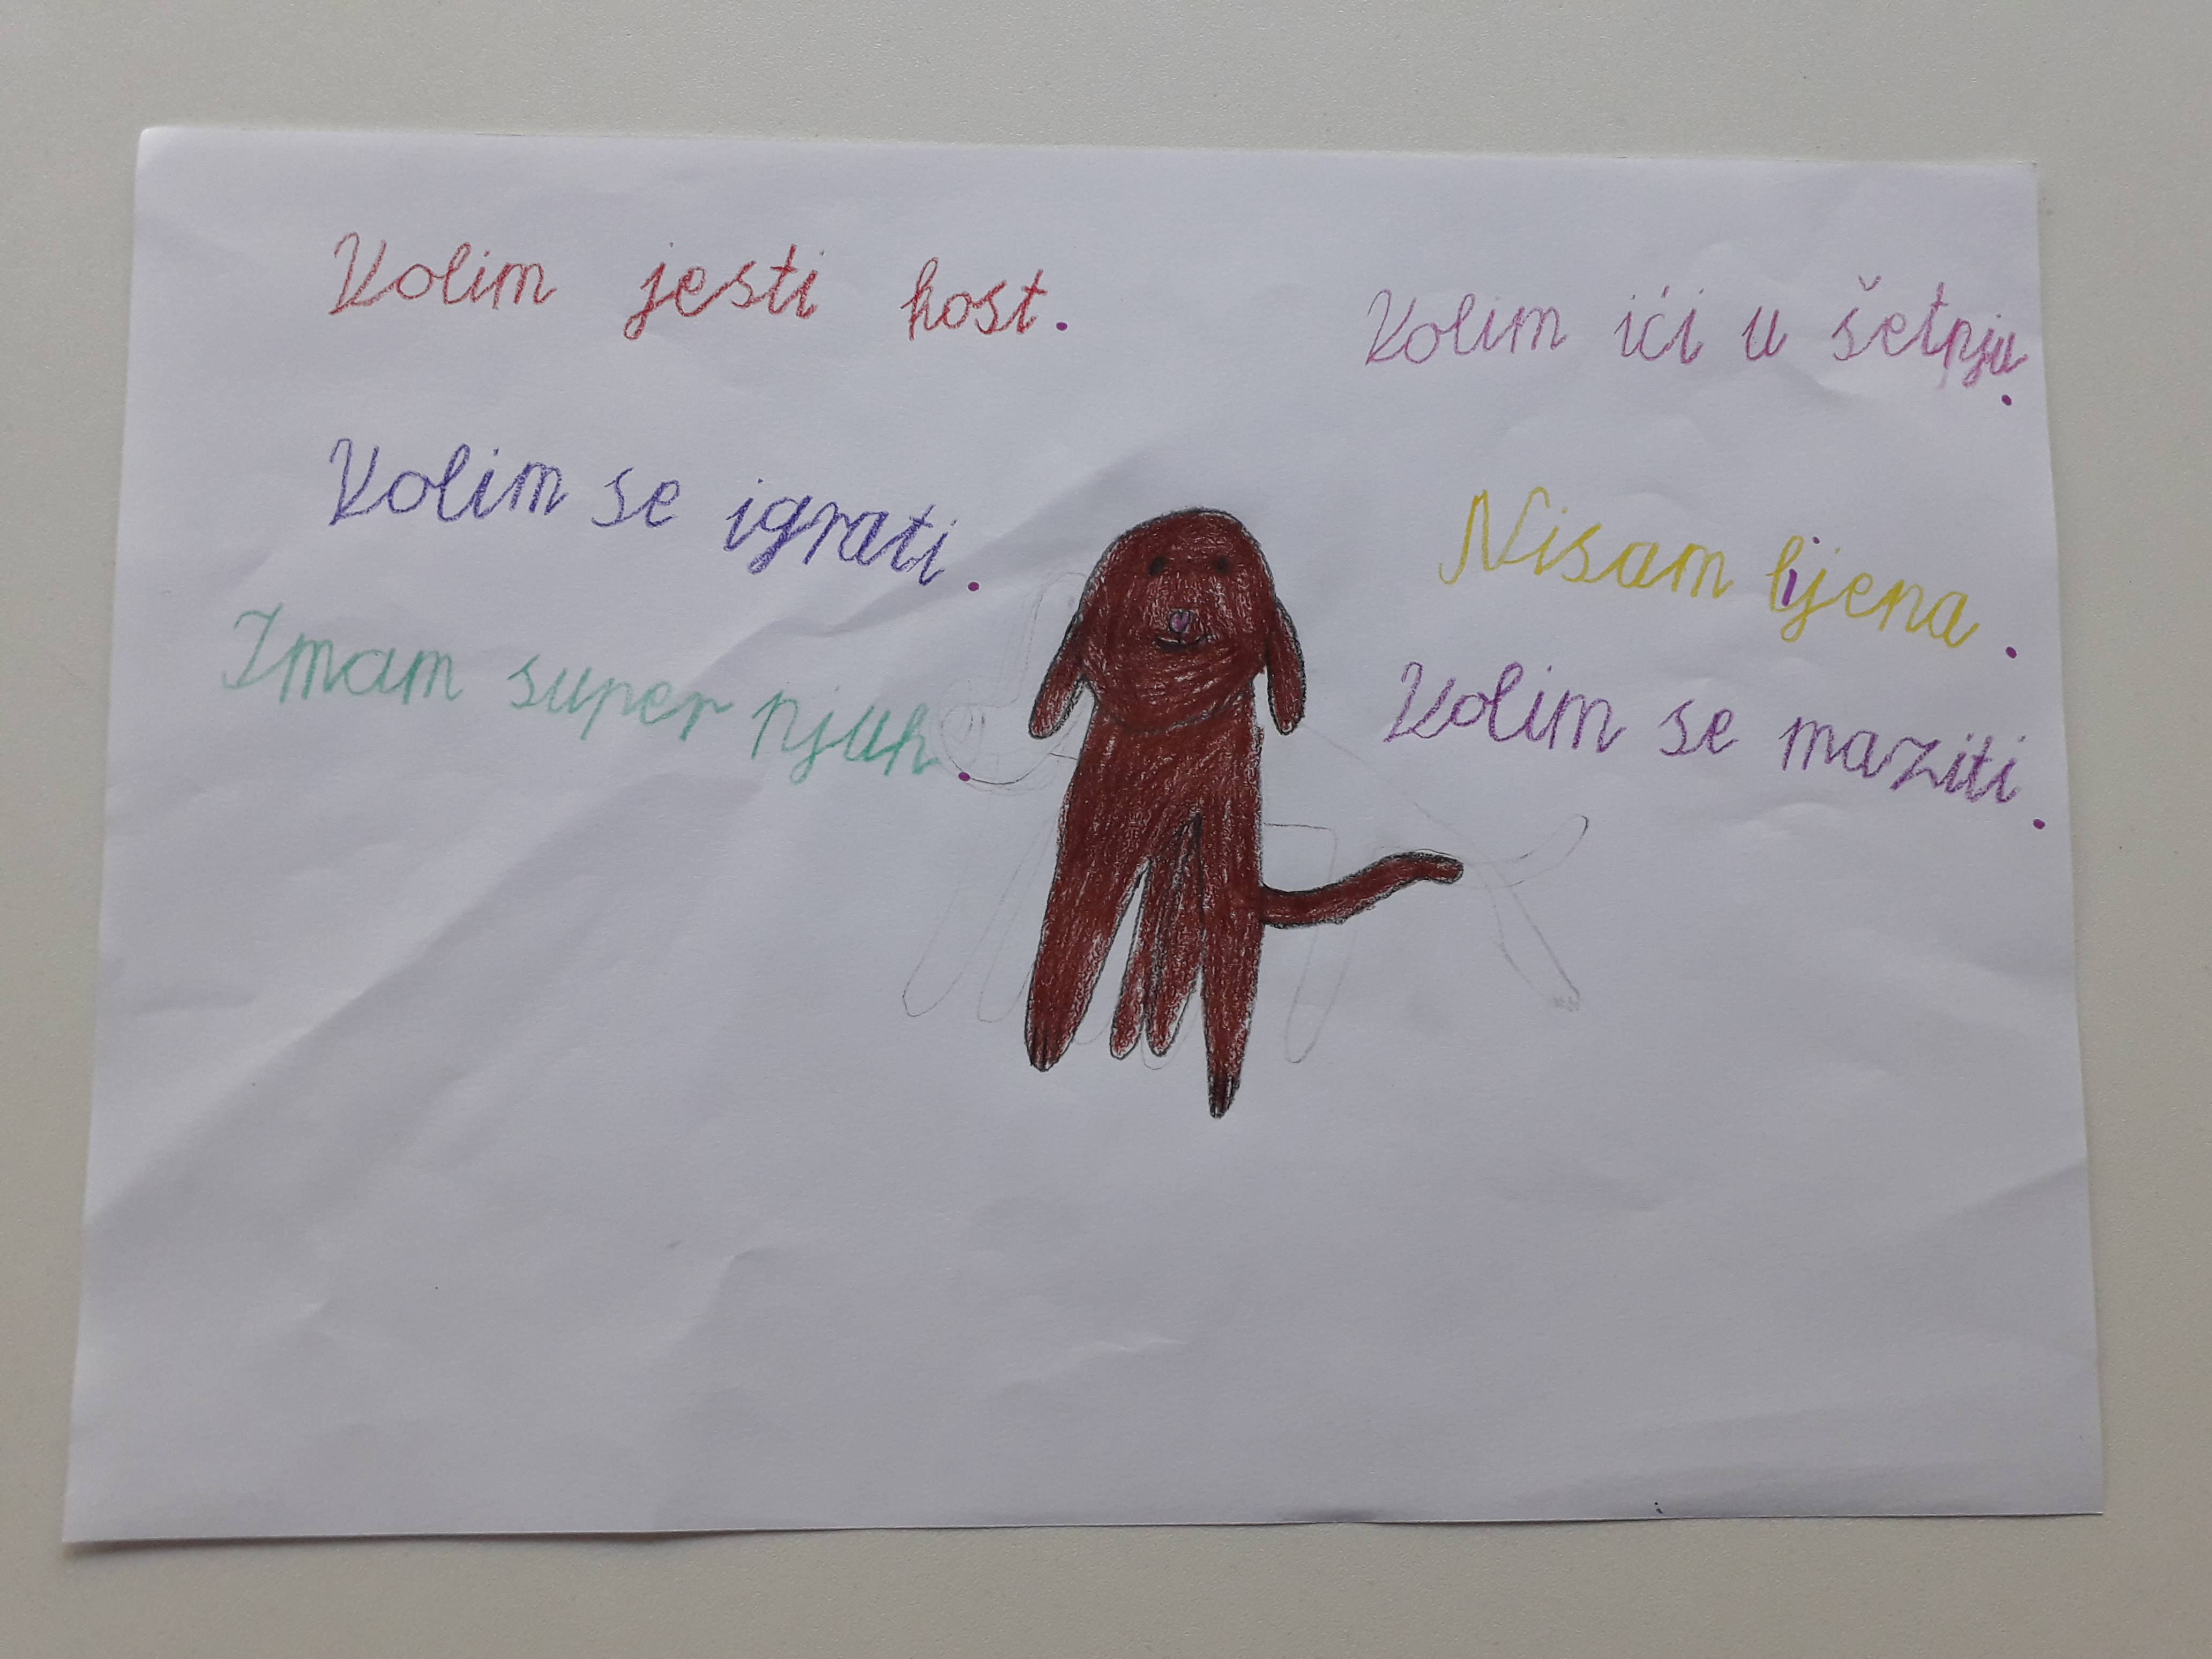 Volim jesti kost.
Volim se igrati.
Imam super njuh.
Volim ići u šetnju.
Nisam lijena.
Volim se maziti.